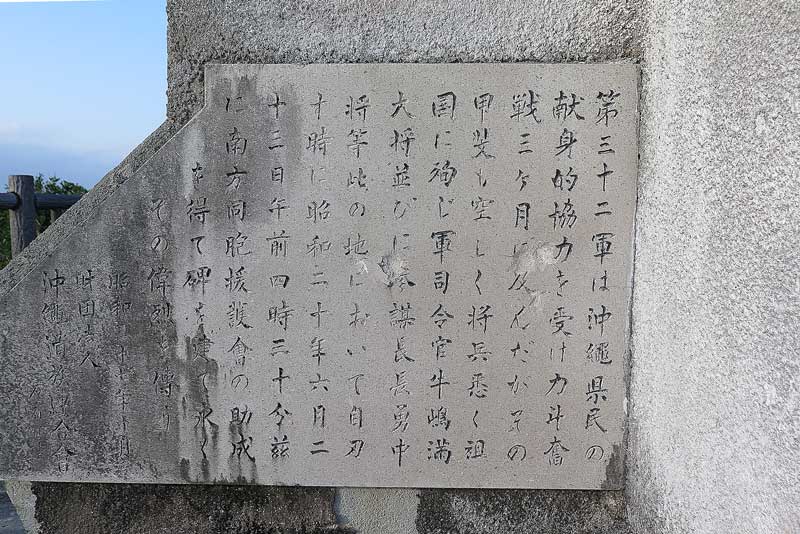 第三十二軍は沖繩県民の
献身的協力を受け力斗奮
戦三ヶ月に及んだがその
甲斐も空しく将兵悉く祖
国に殉じ軍司令官牛嶋満
大将並びに参謀長長勇中
将等此の地において自刃
す時に昭和二十年六月二
十三日午前四時三十分茲
に南方同胞援護會の助成
を得て碑を建て永く
その偉烈を傳う
昭和
財団法人
沖繩